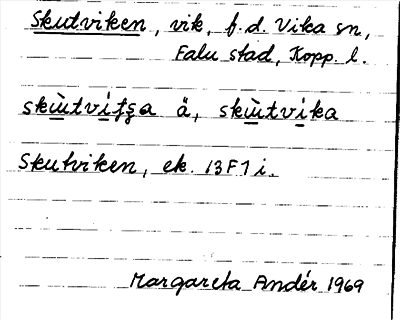 Skutviken, vik, f.d. Vika sn,
Falu stad, Kopp. l.
skùtvitʃa å, skùtvika
Skutviken, ek. 13F7i.
Margareta Andér 1969